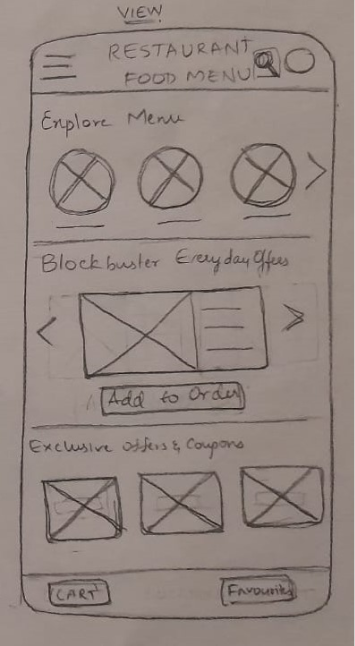 VIEW
RESTAURANT
FOOD MENU
Explore Menu
Blockbuster Everyday Offers
Add to Order
Exclusive Offers & Coupons
CART
FAVOURITES